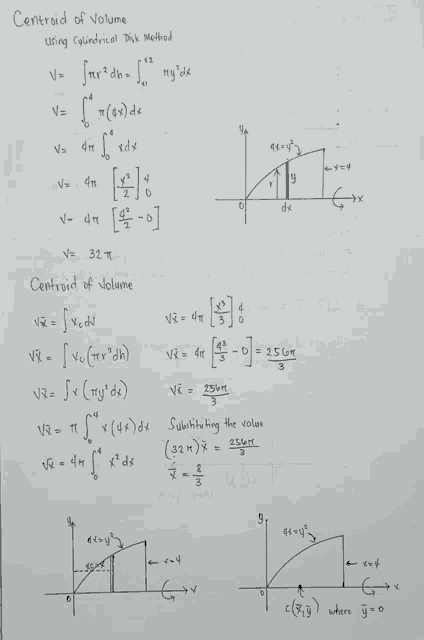 Centroid of Volume
Using Cylindrical Disk Method
V= ∫πr²dh = ∫_{x1}^{x2} πy²dx
V= ∫_0^4 π(4x)dx
V= 4π ∫_0^4 xdx
V= 4π [x²/2]_0^4
V= 4π [4²/2 - 0]
V= 32π
y
4x=y²
r
y
x=4
0
dx
x
Centroid of Volume
Vx̄ = ∫ x_c dV
Vx̄ = ∫ x_c (πr²dh)
Vx̄ = ∫ x (πy²dx)
Vx̄ = π ∫_0^4 x(4x)dx
Vx̄ = 4π ∫_0^4 x²dx
Vx̄ = 4π [x³/3]_0^4
Vx̄ = 4π [4³/3 - 0] = 256π/3
Vx̄ = 256π/3
Substituting the value
(32π)x̄ = 256π/3
x̄ = 8/3
y
4x=y²
xc=x
x=4
0
x
y
4x=y²
x=4
0
x
C(x̄,ȳ) where ȳ=0